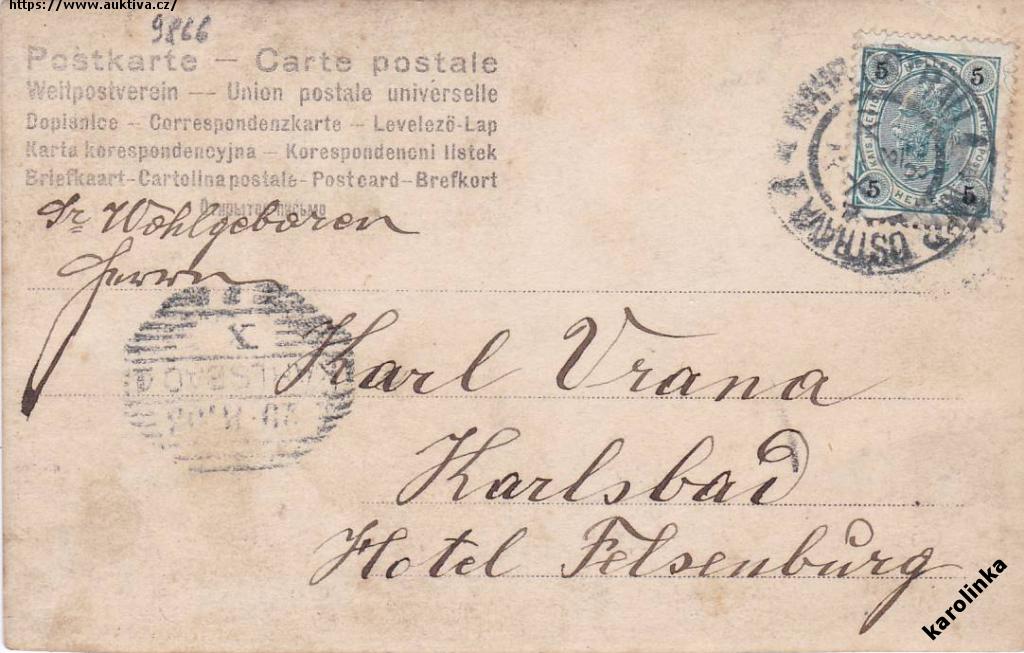 https://www.auktiva.cz/
9866
Postkarte – Carte postale
Weltpostverein — Union postale universelle
Dopisnice – Correspondenzkarte – Levelező-Lap
Karta korespondencyjna – Korespondencni listek
Briefkaart-Cartolina postale-Postcard-Brefkort
Открытое письмо
Sr Wohlgeboren
Herrn
Karl Vrana
Karlsbad
Hotel Felsenburg
5 HELLER 5
5 HELLER 5
OSTRAVA
KARLSBAD 1
karolinka